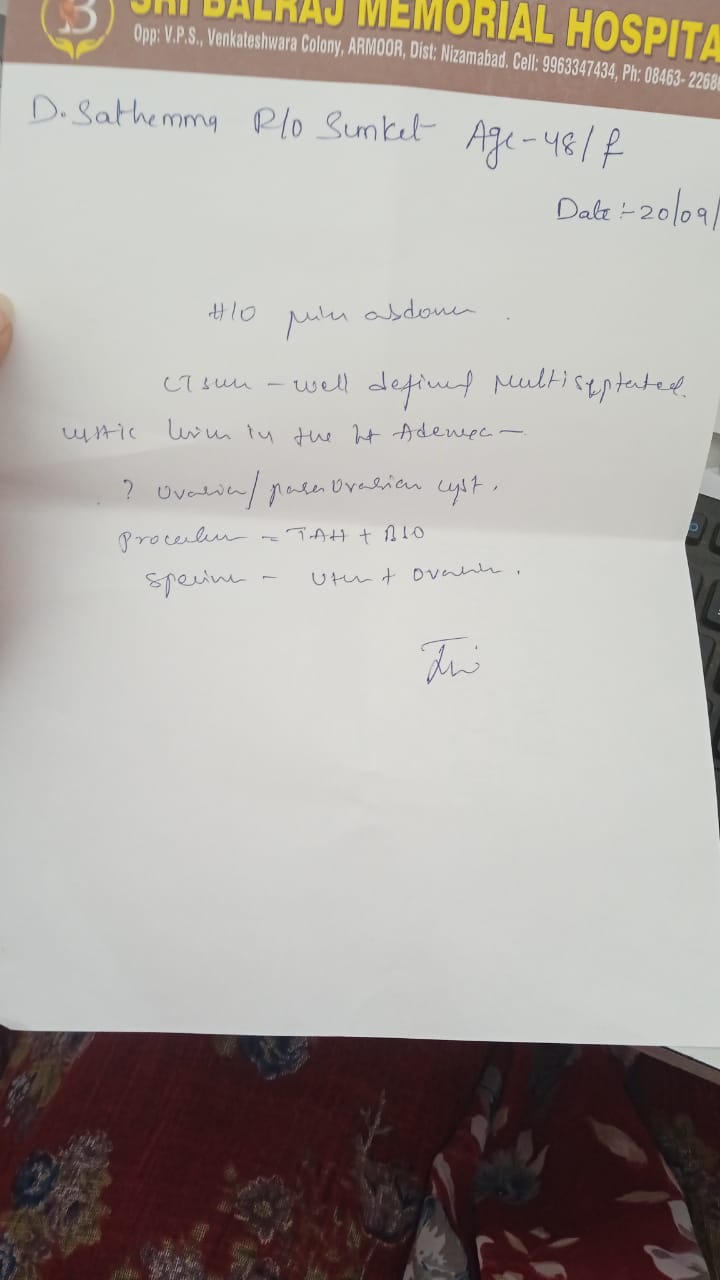 SRI BALRAJ MEMORIAL HOSPITA
Opp: V.P.S., Venkateshwara Colony, ARMOOR, Dist: Nizamabad. Cell: 9963347434, Ph: 08463- 2268
D. Sathemma R/o Sunket Age-48/f
Date :- 20/09/
H/O pain abdomen.
CT scan - well defined multiseptated
cystic in the Adenexa -
? Ovarian/ paraovarian cyst.
Procedure = TAH + BSO
Specimen - Uterus + Ovaries.